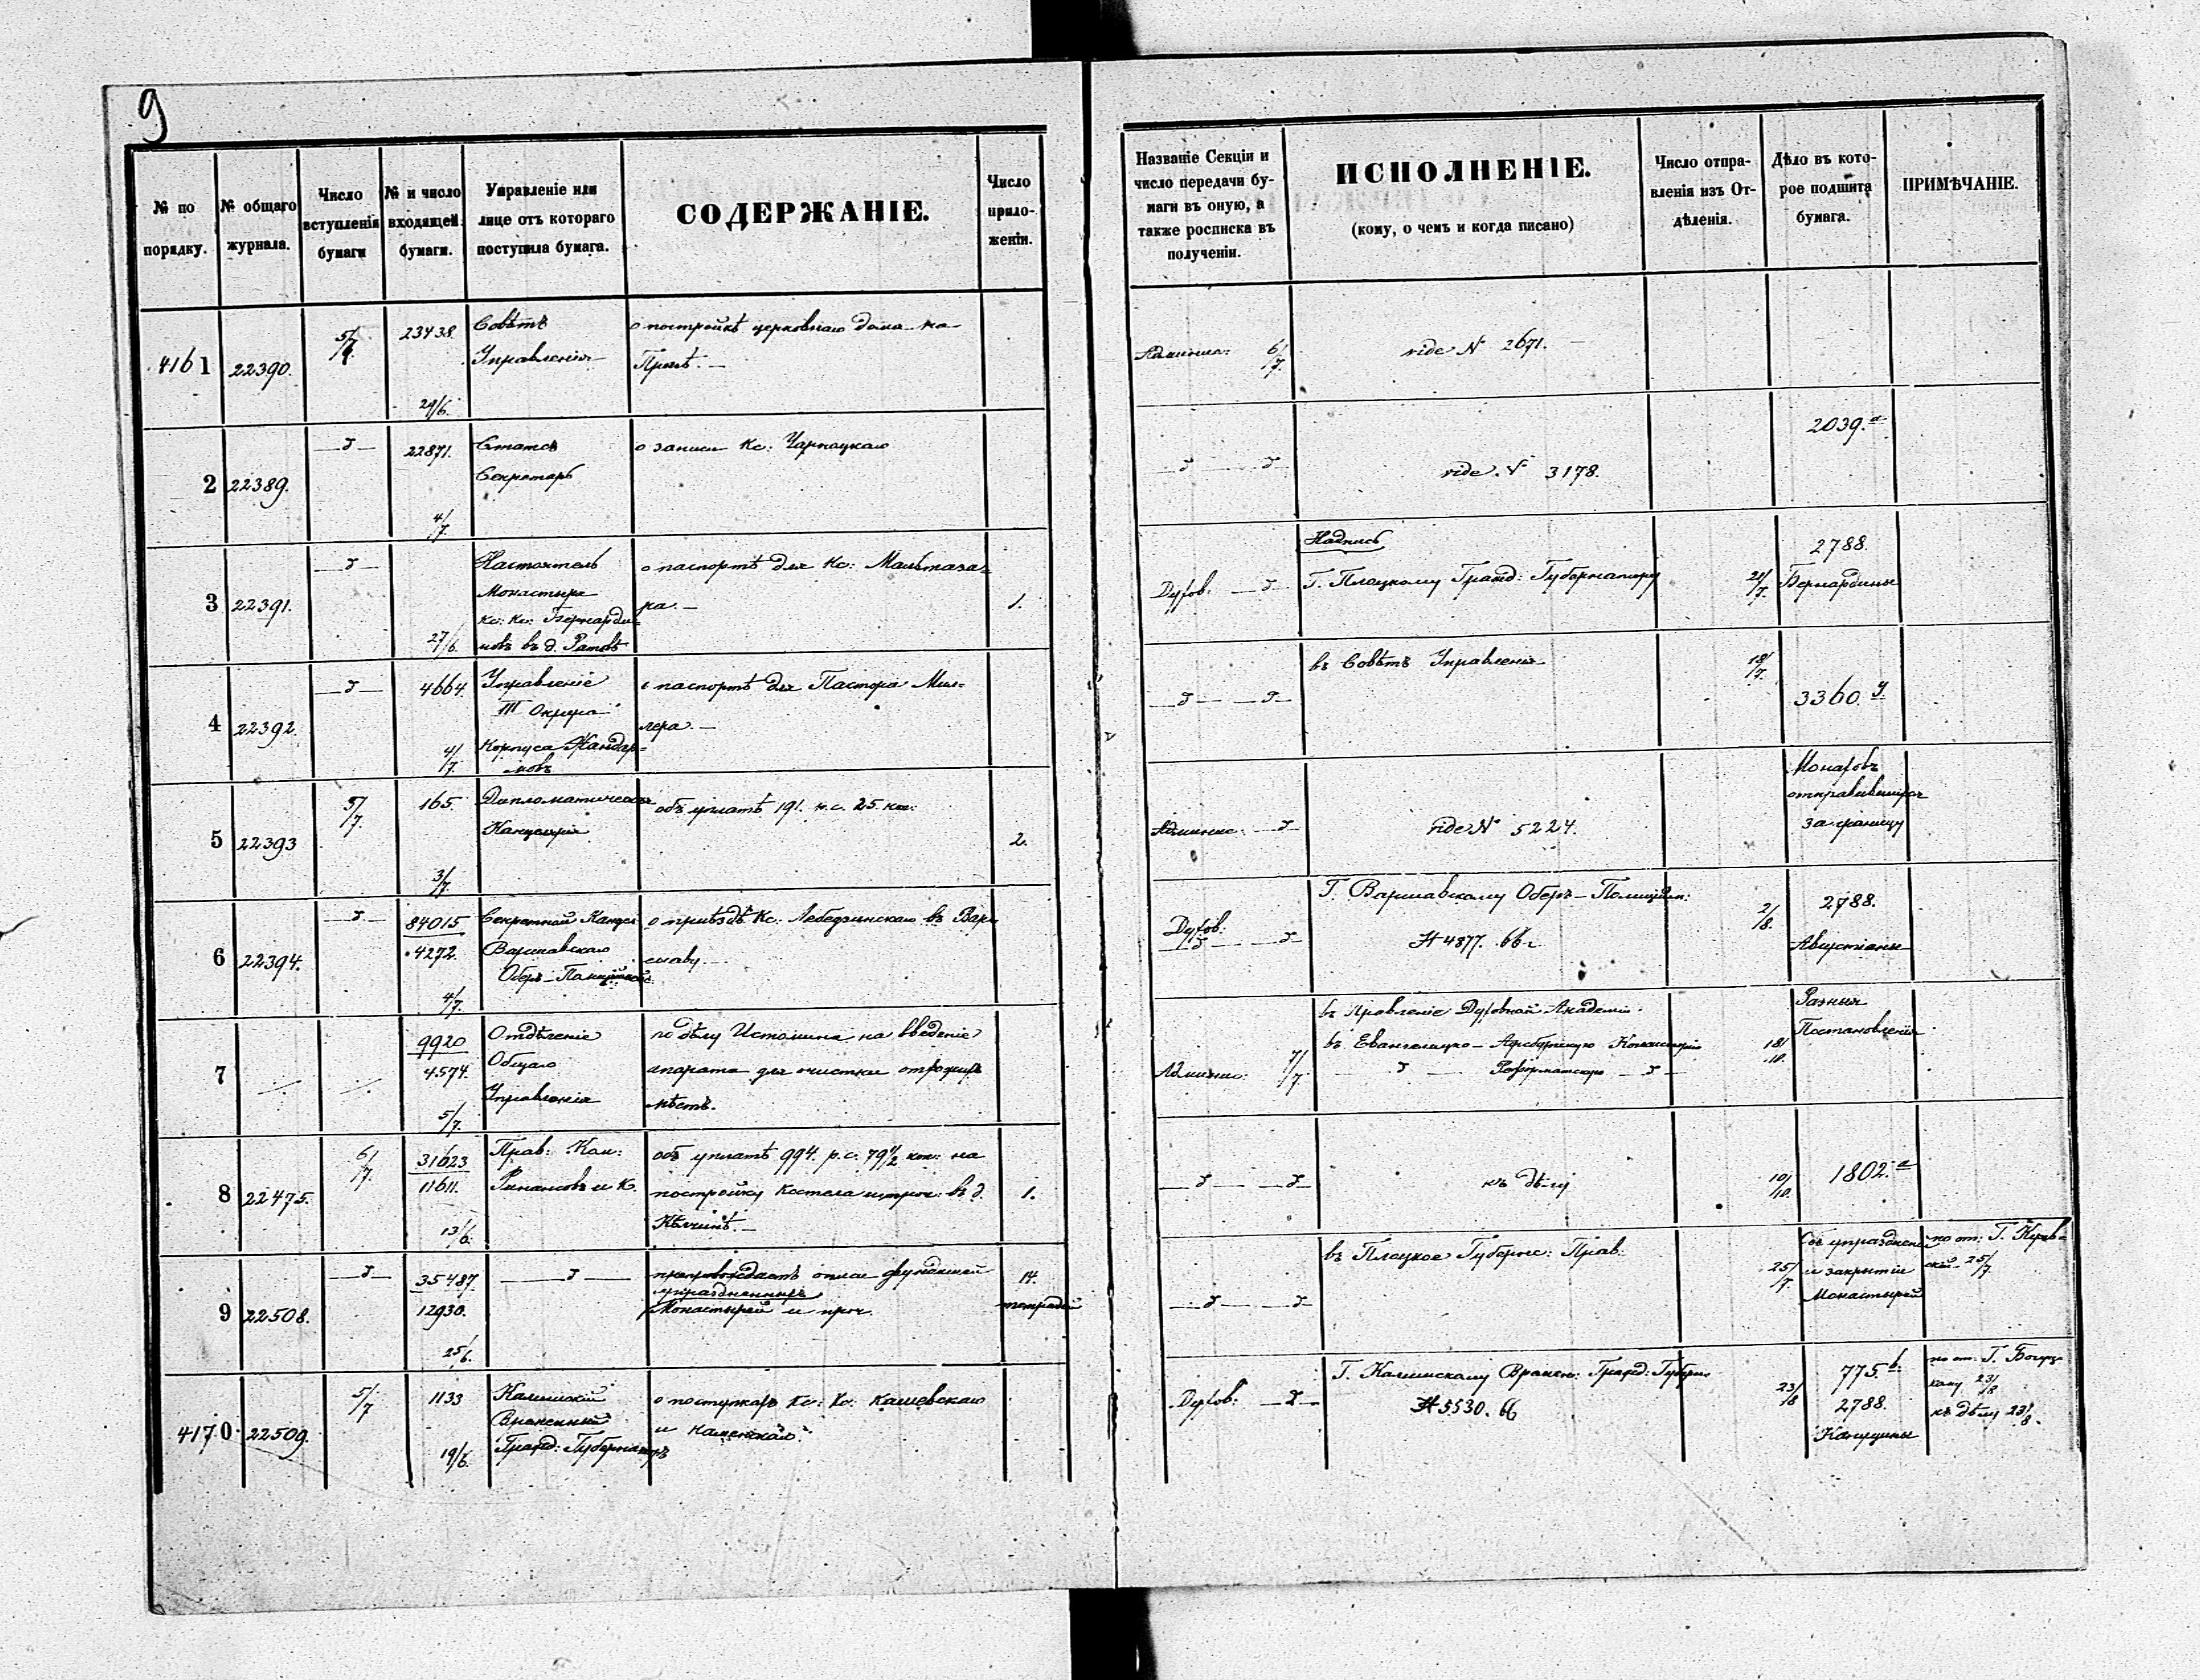 9
№ по порядку.
№ общаго журнала.
Число вступленія бумаги
№ и число входящей бумаги.
Управленіе или лице отъ котораго поступила бумага.
СОДЕРЖАНІЕ.
Число прило-
женіи.
Названіе Секціи и
число передачи бу-
маги въ оную, а
также росписка въ
полученіи.
ИСПОЛНЕНІЕ.
(кому, о чемъ и когда писано)
Число отпра-
вленія изъ От-
дѣленія.
Дѣло въ кото-
рое подшита
бумага.
ПРИМѢЧАНІЕ.
4161 22390. 5/7 23438 29/6.
Совѣтъ
Управленія
о постройкѣ церковнаго дома на
6/7.
vide № 2671.
2 22389. 22871. 4/7.
Статсъ
Секретарь
о записи Кс: Чарнацкаго
vide № 3178.
2039.a
3 22391. 27/6.
Настоятель
Монастыря
Кс: Кс: Бернарди-
новъ въ д. Ратовѣ
о паспортѣ для Кс: Мальтаза-
ра. —
1.
Духов:
Надпись
Г. Плоцкому Гражд: Губернатору
21/7.
2788.
Бернардины
4 22392. 4664 4/7.
Управленіе
III Округа
Корпуса Жандар-
мовъ
о паспортѣ для Пастора Мил-
лера. —
въ Совѣтъ Управленія
18/7.
3360. y
5 22393 5/7. 165. 3/7.
Канцелярія
объ уплатѣ 191. р.с. 25. коп:
2.
Админис:
vide № 5224.
Монаховъ
отправившихся
за границу
6 22394. 84015 4272. 4/7.
Варшавскаго
о пріѣздѣ Кс: Лебедзинскаго въ Вар-
шаву. —
Духов:
Г. Варшавскому Оберъ-Полицій:
№ 4877.
2/8.
2788.
Августіаны
7 9920 4574. 5/7.
Отдѣленіе
Общаго
Управленія
по дѣлу Истомина на введеніе
апарата для очистки отхожихъ
мѣстъ.
7/7.
въ Правленіе Духовной Академіи.
въ Евангелицко-Аугсбургскую Консисторію
18/10.
Разныя
Постановленія
8 22475. 6/7. 31623 11611. 13/6.
Прав: Ком:
Финансовъ и К.
объ уплатѣ 994. р.с. 79 1/2 коп: на
постройку Костела и проч: въ д.
1.
къ дѣлу
10/10.
1802.a
9 22508. 35487. 12930. 25/6.
препровождаетъ описи фундацій
упраздненныхъ
Монастырей и проч.
14.
тетрадей
въ Плоцкое Губернс: Прав:
25/7.
Объ упраздненіи
и закрытіи
Монастырей
25/7.
4170 22509. 5/7 1133 19/6.
Калишскій
Гражд: Губернаторъ
о поступкахъ Кс: Кс: Кашевскаго
и Каменскаго.
Духов:
№ 5530.
23/8
775.b.
2788.
23/8
къ дѣлу 23/8.